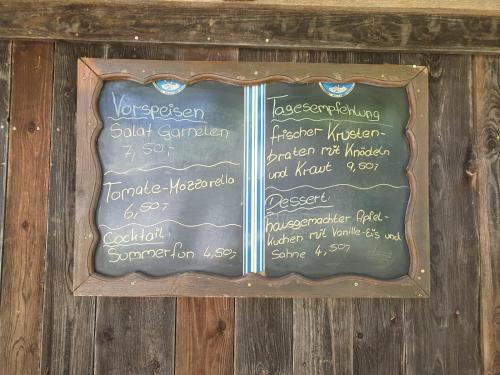 Vorspeisen
Salat Garnelen
7,50,-
Tomate-Mozzarella
6,50,-
Cocktail
Summerfun 4,50,-
Tagesempfehlung
frischer Krusten-
braten mit Knödeln
und Kraut 9,50,-
Dessert
hausgemachter Apfel-
kuchen mit Vanille-Eis und
Sahne 4,50,-